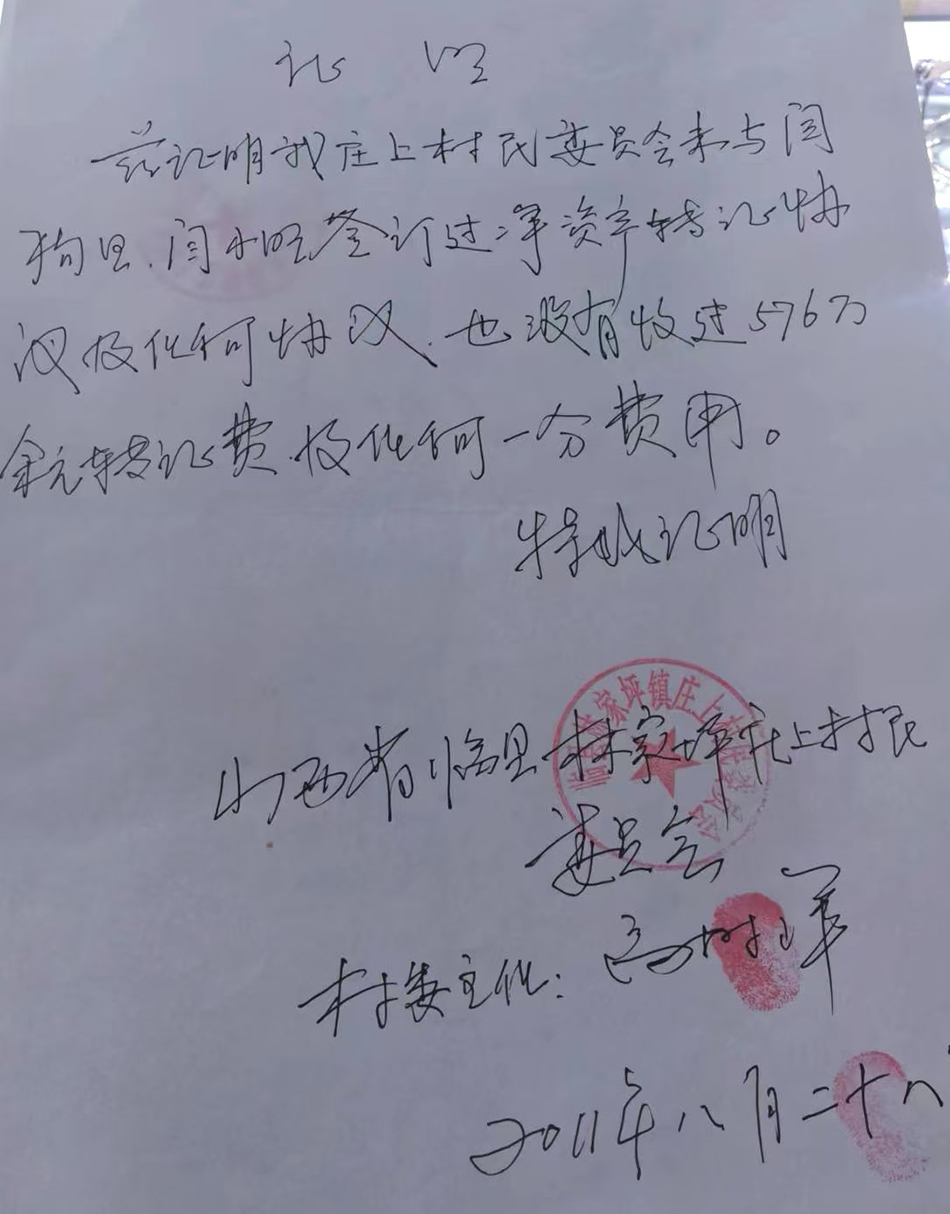 证 明
兹证明我庄上村民委员会未与闫
狗旦、闫小旺签订过净资产转让协
议及任何协议、也没有收过576万
余元转让费、及任何一分费用。
特此证明
山西省临县林家坪庄上村民
委员会
林家坪镇庄上
村委主任:高树军
2011年八月二十八